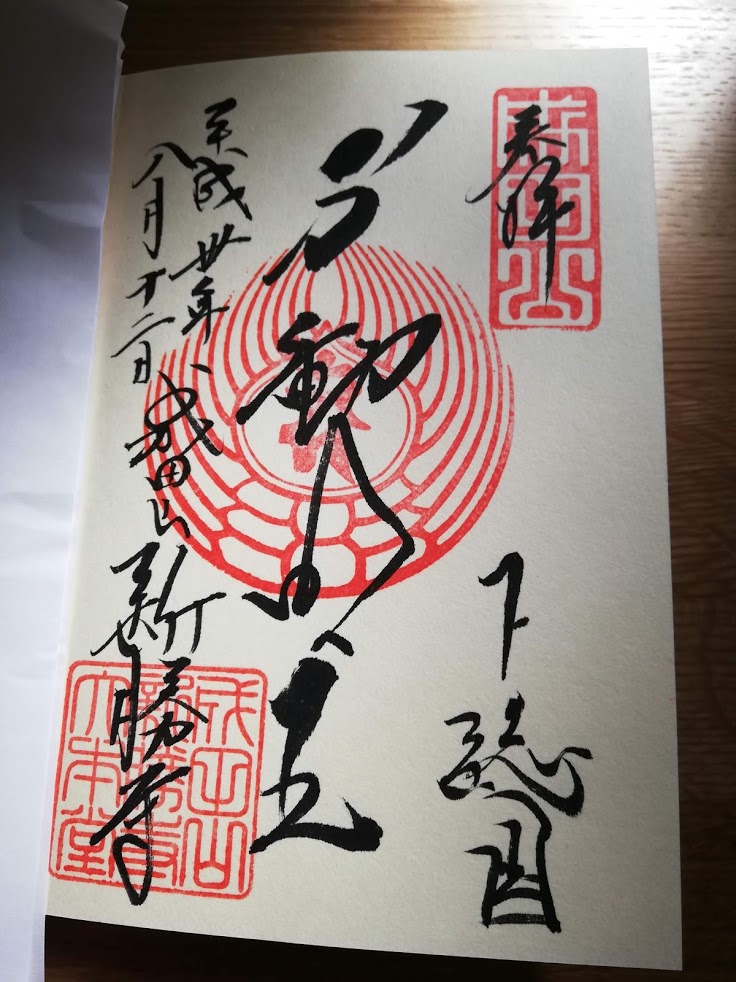 奉拝
成田山
下総国
不動明王
平成卅年
八月十二日
成田山新勝寺
成田山
新勝寺
大本堂